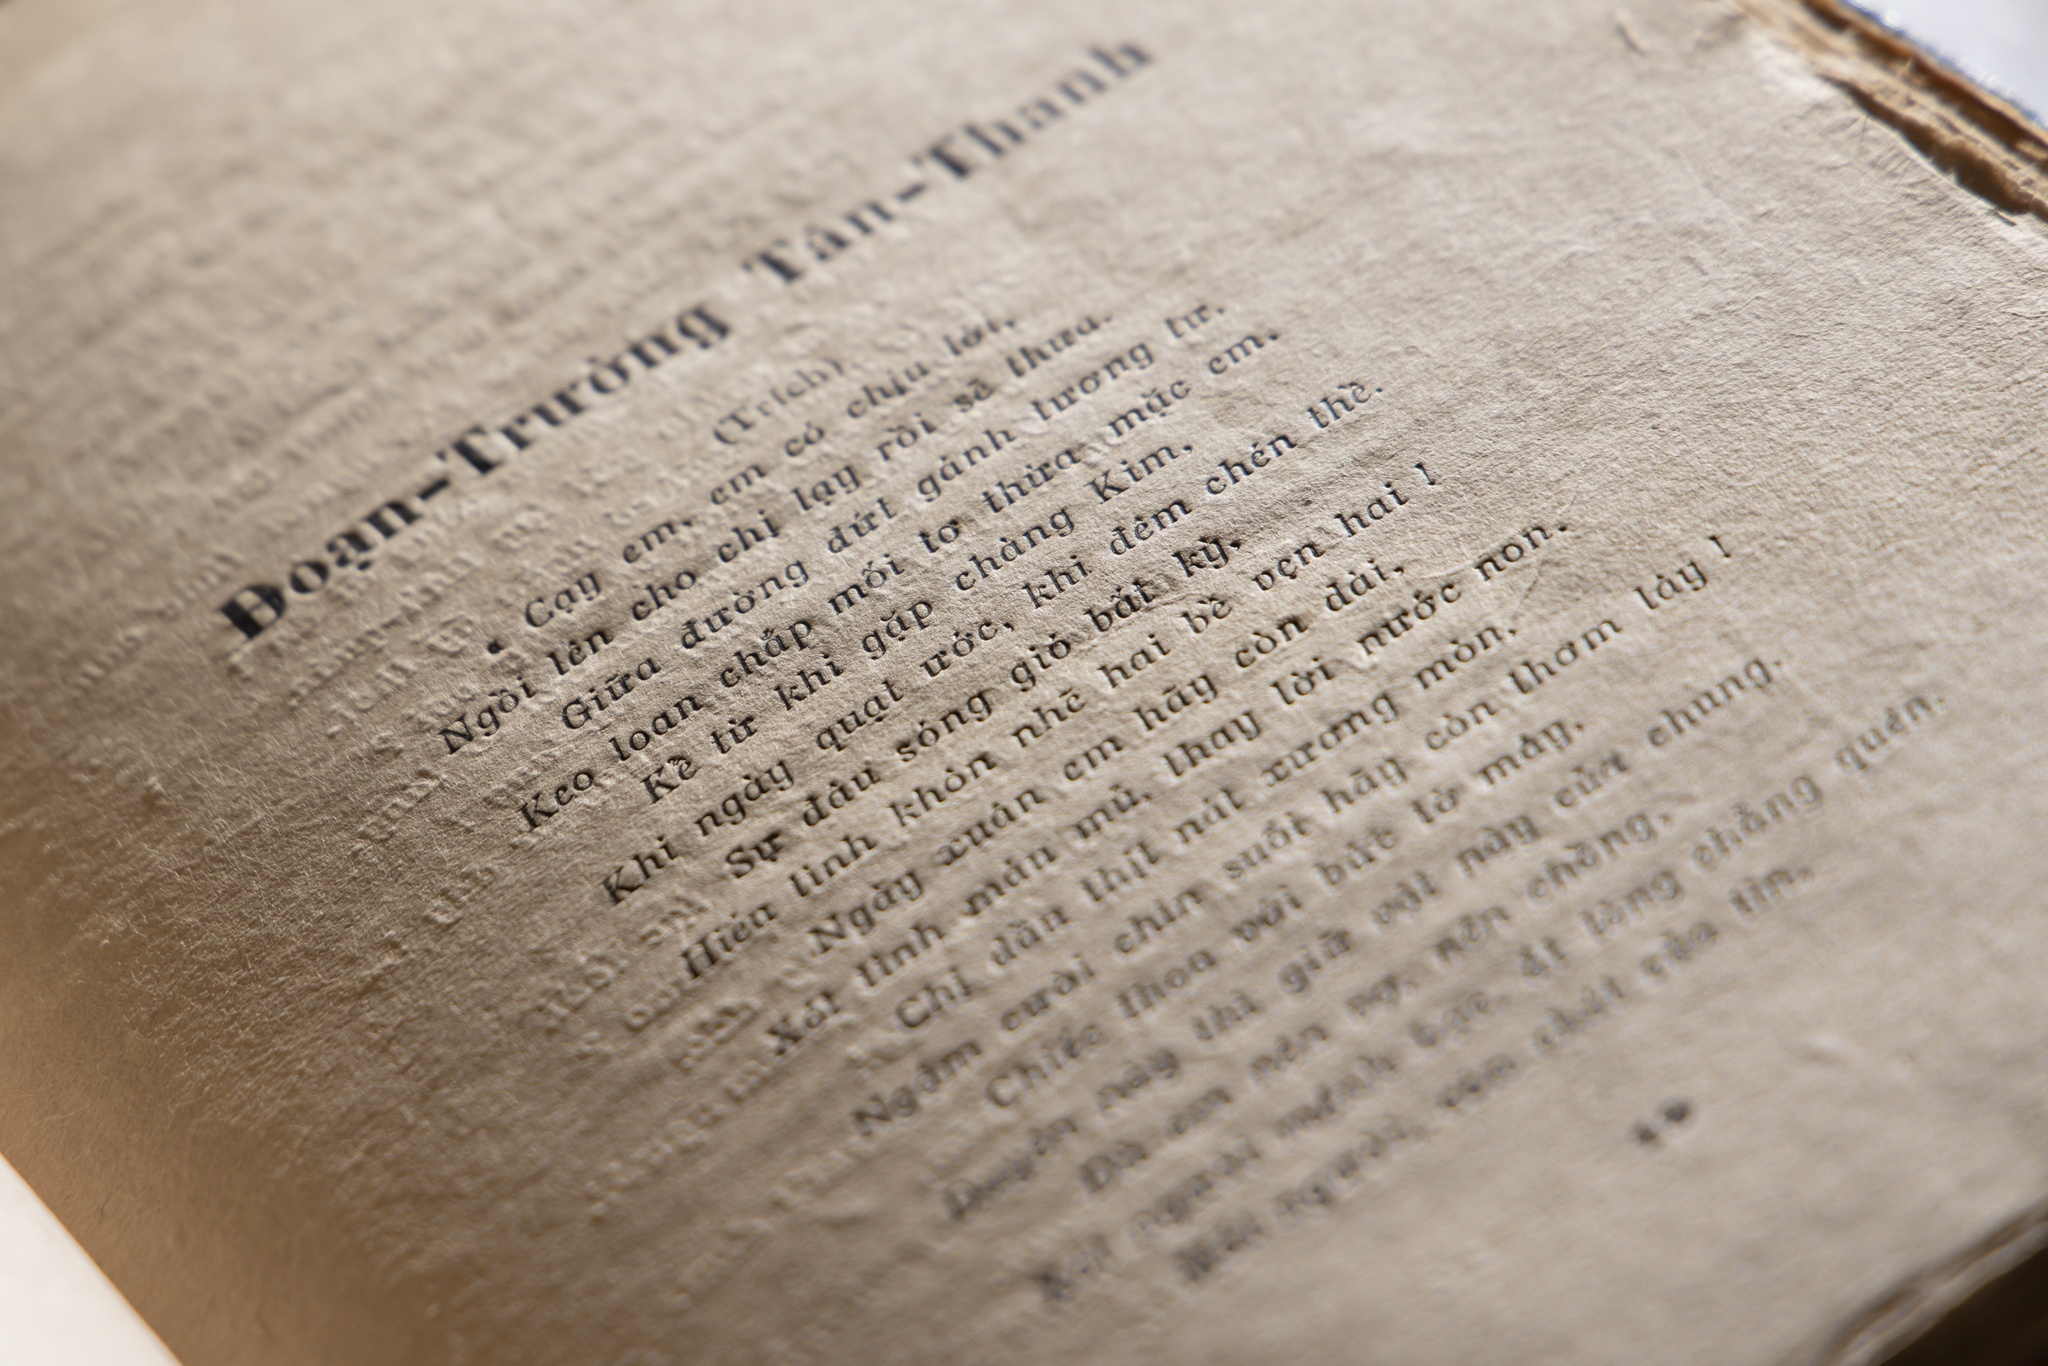 Đoạn-Trường Tân-Thanh
(Trích)
Cạy em, em có chịu lời,
Ngồi lên cho chị lạy rồi sẽ thưa.
Giữa đường đứt gánh tương tư.
Keo loan chắp mối tơ thừa mặc em.
Kể từ khi gặp chàng Kim,
Khi ngày quạt ước, khi đêm chén thề.
Sự đâu sóng gió bất kỳ,
Hiếu tình khôn nhẽ hai bề vẹn hai !
Ngày xuân em hãy còn dài,
Xót tình máu mủ, thay lời nước non.
Chị dần thịt nát xương mòn,
Ngậm cười chín suối hãy còn thơm lây !
Chiếc thoa với bức tờ mây,
Duyên này thì giữ vật này của chung.
Dù em nên vợ, nên chồng,
Xót người mệnh bạc, ắt lòng chẳng quên.
Mất người, còn chút của tin,